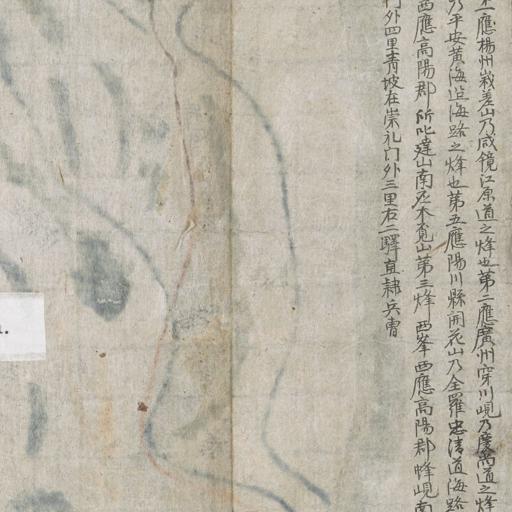 一應楊州峩嵯山乃咸鏡江原道之烽也第二應廣州穿川峴乃慶尙道之烽
乃平安黃海道海路之烽也第五應陽川縣開花山乃全羅忠淸道海路
西應高陽郡所叱達山南应木覔山第三烽西峯西應高陽郡蜂峴南
門外四里靑坡在崇礼门外三里右二驛直隷兵曹